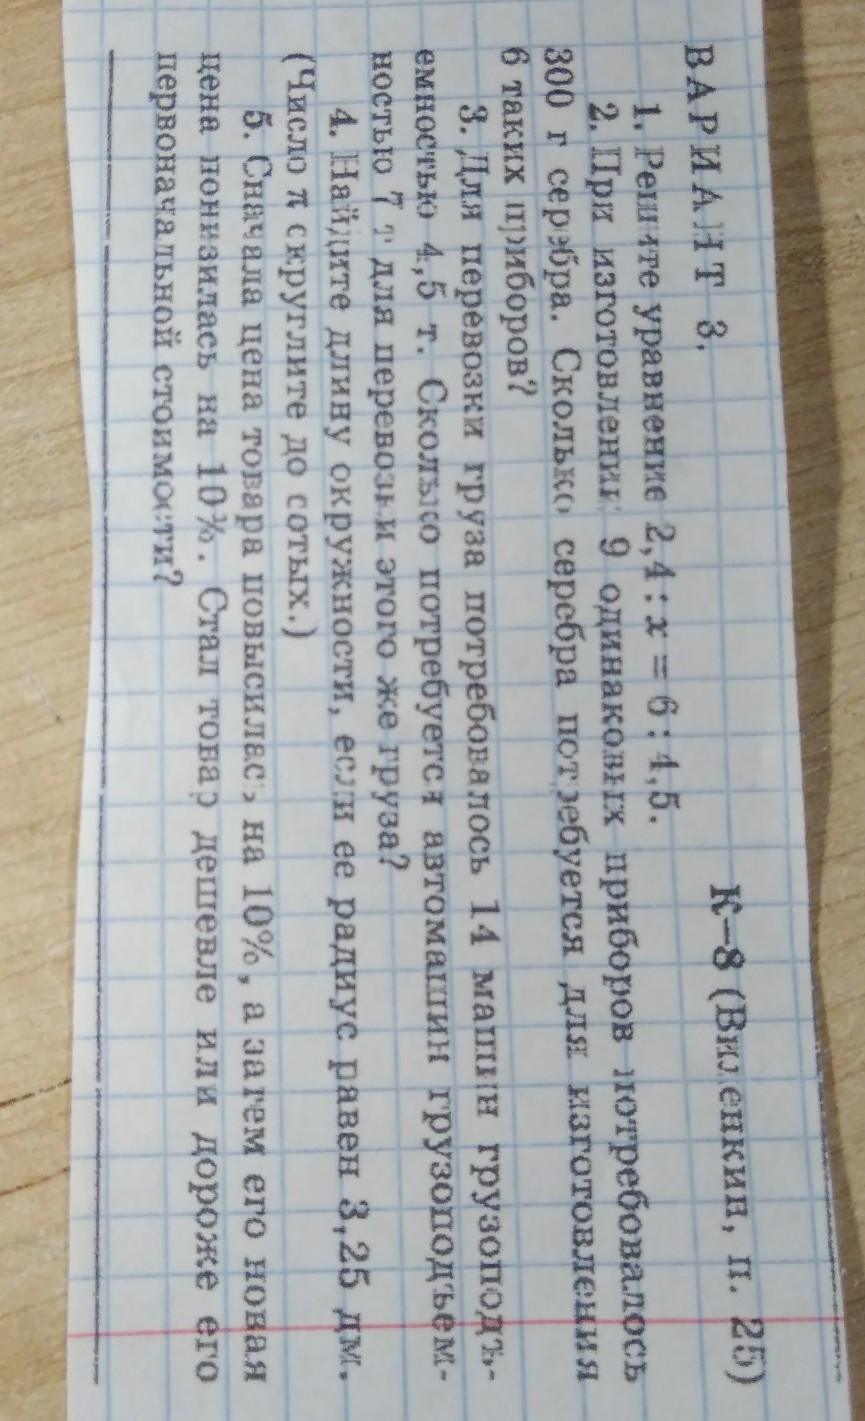 ВАРИАНТ 3. К–8 (Виленкин, п. 25)
1. Решите уравнение 2,4 : x = 6 : 4,5.
2. При изготовлении 9 одинаковых приборов потребовалось
300 г серебра. Сколько серебра потребуется для изготовления
6 таких приборов?
3. Для перевозки груза потребовалось 14 машин грузоподъ-
емностью 4,5 т. Сколько потребуется автомашин грузоподъем-
ностью 7 т для перевозки этого же груза?
4. Найдите длину окружности, если ее радиус равен 3,25 дм.
(Число π округлите до сотых.)
5. Сначала цена товара повысилась на 10%, а затем его новая
цена понизилась на 10%. Стал товар дешевле или дороже его
первоначальной стоимости?